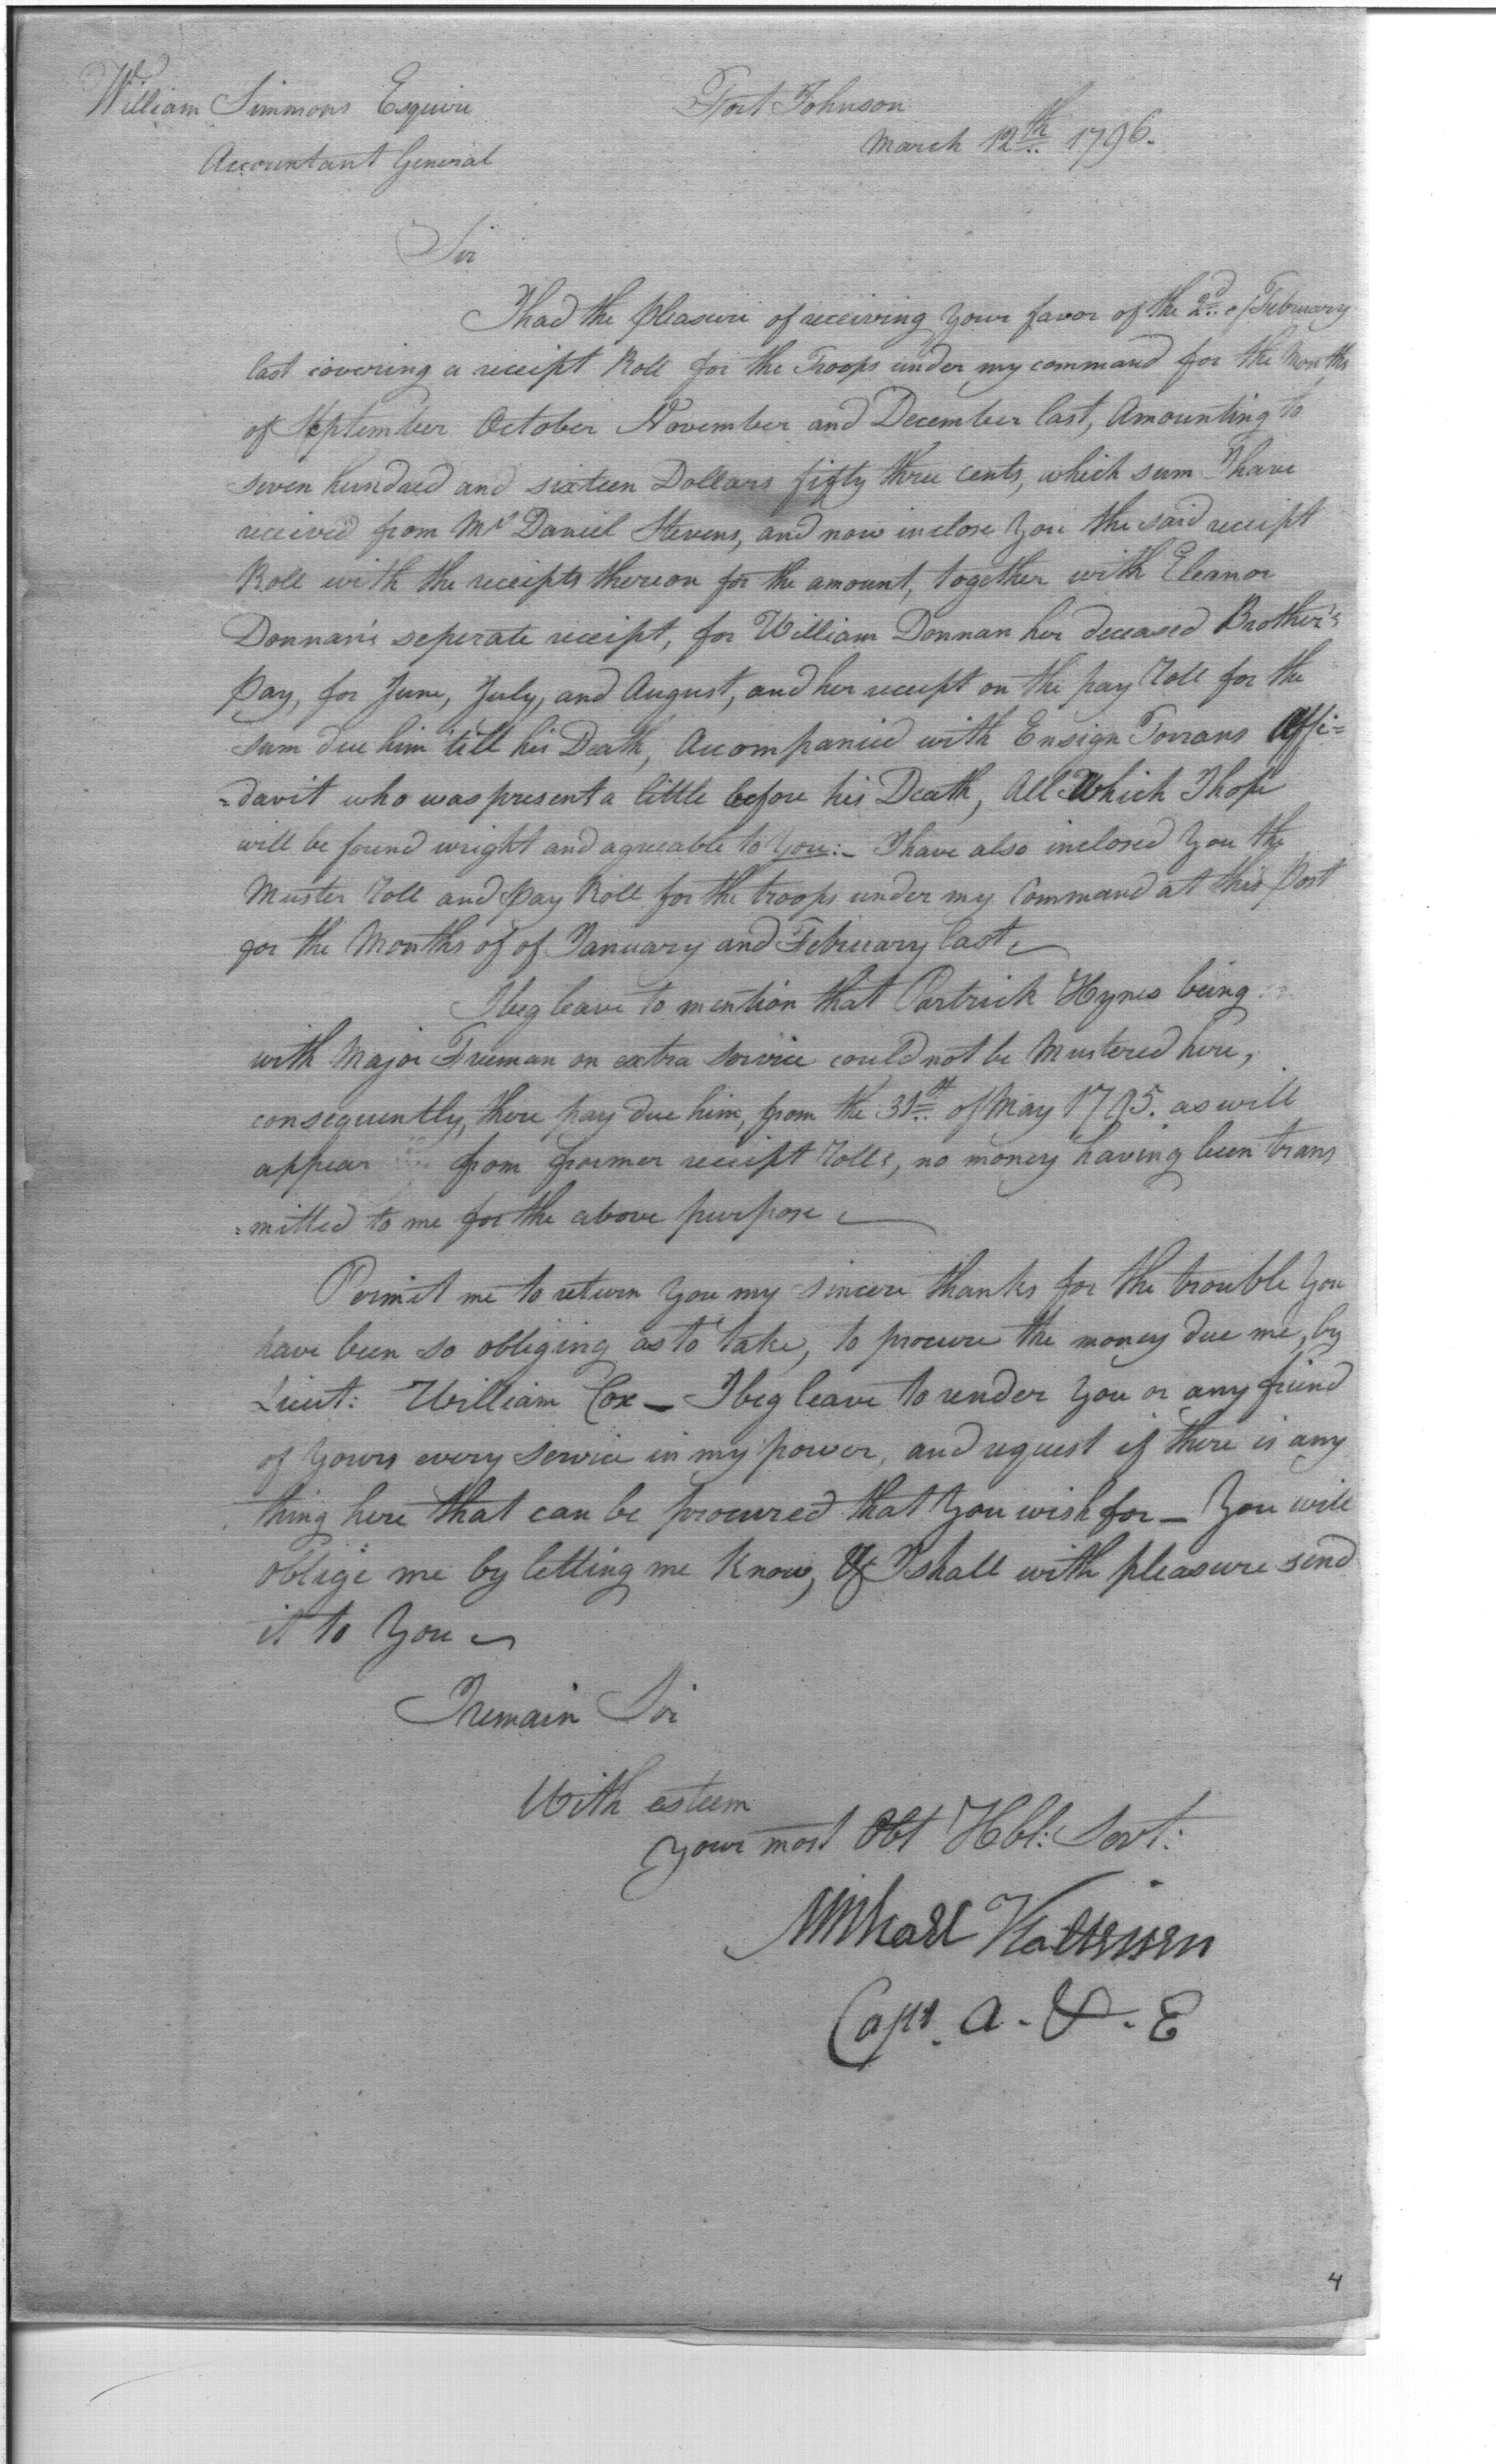 William Simmons Esquire
Accountant General
Fort Johnson
March 12th 1796.
Sir
I had the pleasure of receiving your favor of the 2d of February
last covering a receipt Roll for the Troops under my command for the Months
of September October November and December last, Amounting to
seven hundred and sixteen Dollars fifty three cents, which sum I have
received from Mr Daniel Stevens, and now inclose You the said receipt
Roll with the receipts thereon for the amount, together with Eleanor
Donnan's seperate receipt, for William Donnan her deceased Brother's
Pay, for June, July, and August, and her receipt on the pay roll for the
sum due him till his Death, Accompanied with Ensign Torrans Affi=
=davit who was present a little before his Death, All Which I hope
will be found wright and agreeable to You:- I have also inclosed You the
Muster roll and Pay Roll for the troops under my Command at this Post
for the Months of of January and February last
I beg leave to mention that Partrick Hynes being
with Major Freeman on extra service could not be Mustered here,
consequently, there pay due him, from the 31st of May 1795. as will
appear from former receipt rolls, no money having been trans
=mitted to me for the above purpose
Permit me to return You my sincere thanks for the trouble You
have been so obliging as to take, to procure the money due me, by
Lieut: William Cox - I beg leave to render You or any friend
of Yours every service in my power, and request if there is any
thing here that can be procured that You wish for - You will
oblige me by letting me know, & I shall with pleasure send
it to You
I remain Sir
With esteem
Your most Obt Hbl: Servt:
Michael Kalteisen
Capt. A. & E
4